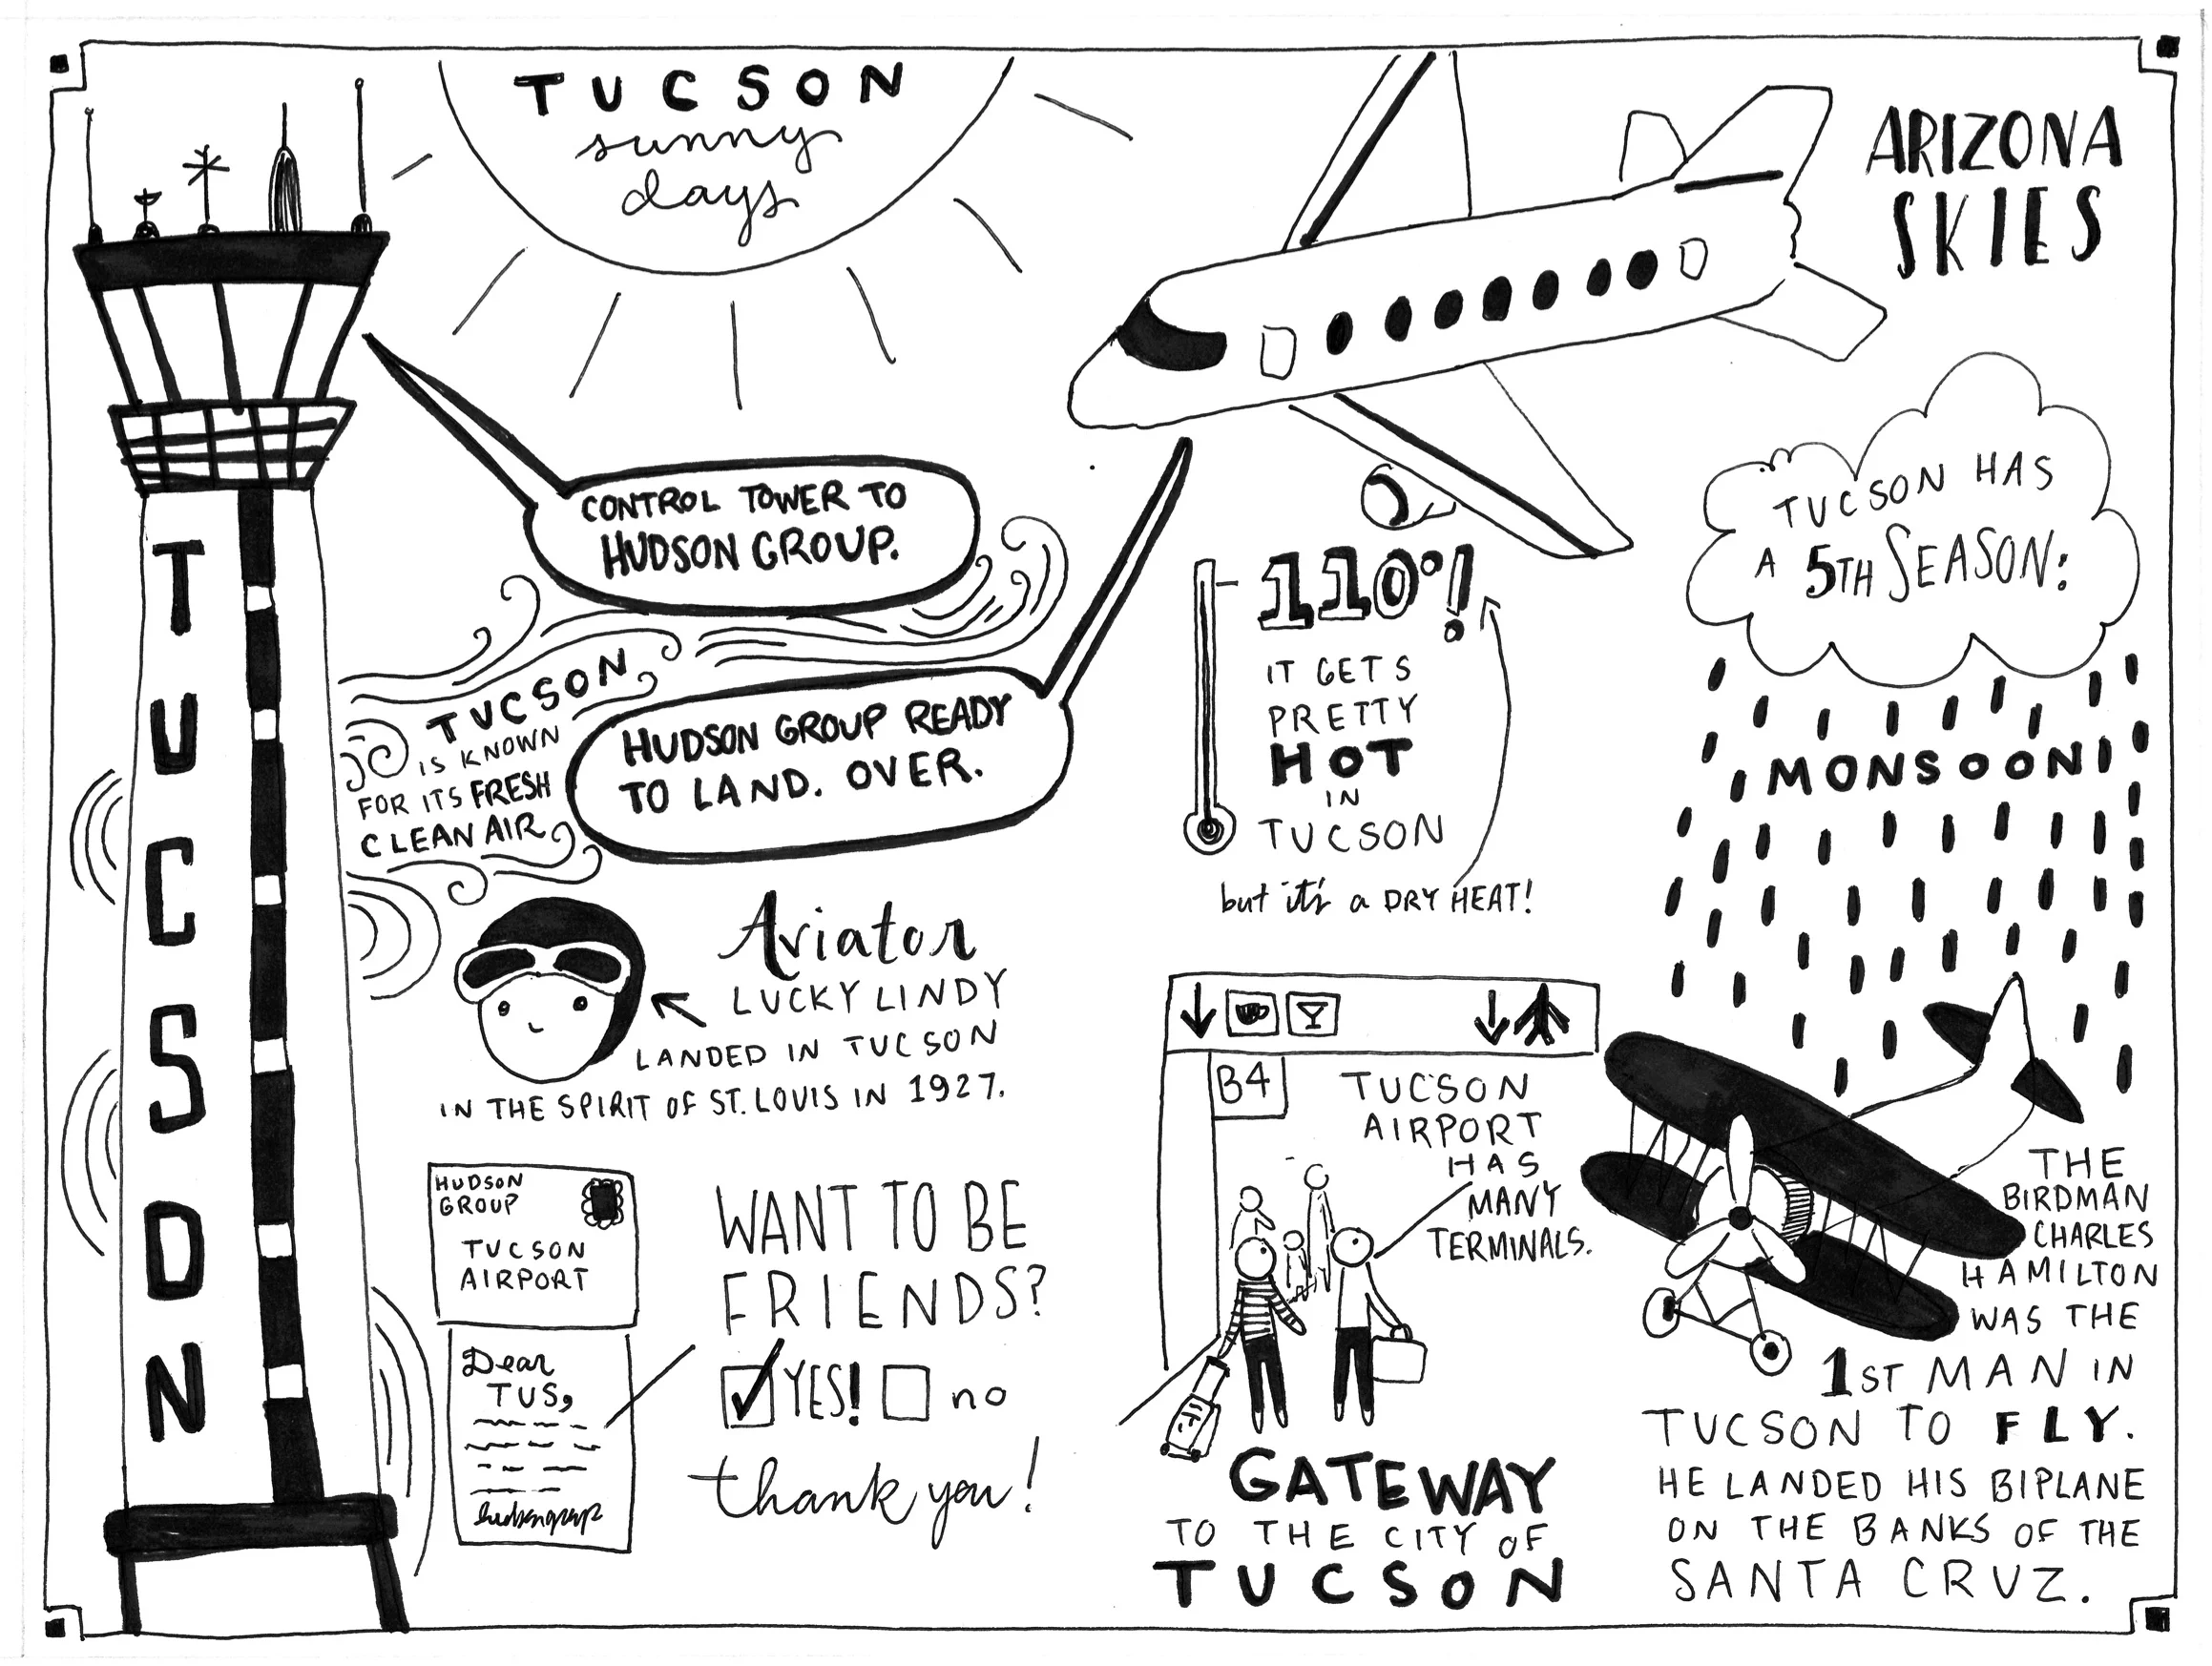 TUCSON
sunny
days
ARIZONA
SKIES
TUCSON
CONTROL TOWER TO
HUDSON GROUP.
HUDSON GROUP READY
TO LAND. OVER.
TUCSON
IS KNOWN
FOR ITS FRESH
CLEAN AIR
110°!
IT GETS
PRETTY
HOT
IN
TUCSON
but it's a DRY HEAT!
TUCSON HAS
A 5TH SEASON:
MONSOON!
Aviator
LUCKY LINDY
LANDED IN TUCSON
IN THE SPIRIT OF ST. LOUIS IN 1927.
HUDSON
GROUP
TUCSON
AIRPORT
Dear
TUS,
hudsongroup
WANT TO BE
FRIENDS?
YES! no
thank you!
B4
TUCSON
AIRPORT
HAS
MANY
TERMINALS.
GATEWAY
TO THE CITY OF
TUCSON
THE
BIRDMAN
CHARLES
HAMILTON
WAS THE
1ST MAN IN
TUCSON TO FLY.
HE LANDED HIS BIPLANE
ON THE BANKS OF THE
SANTA CRUZ.